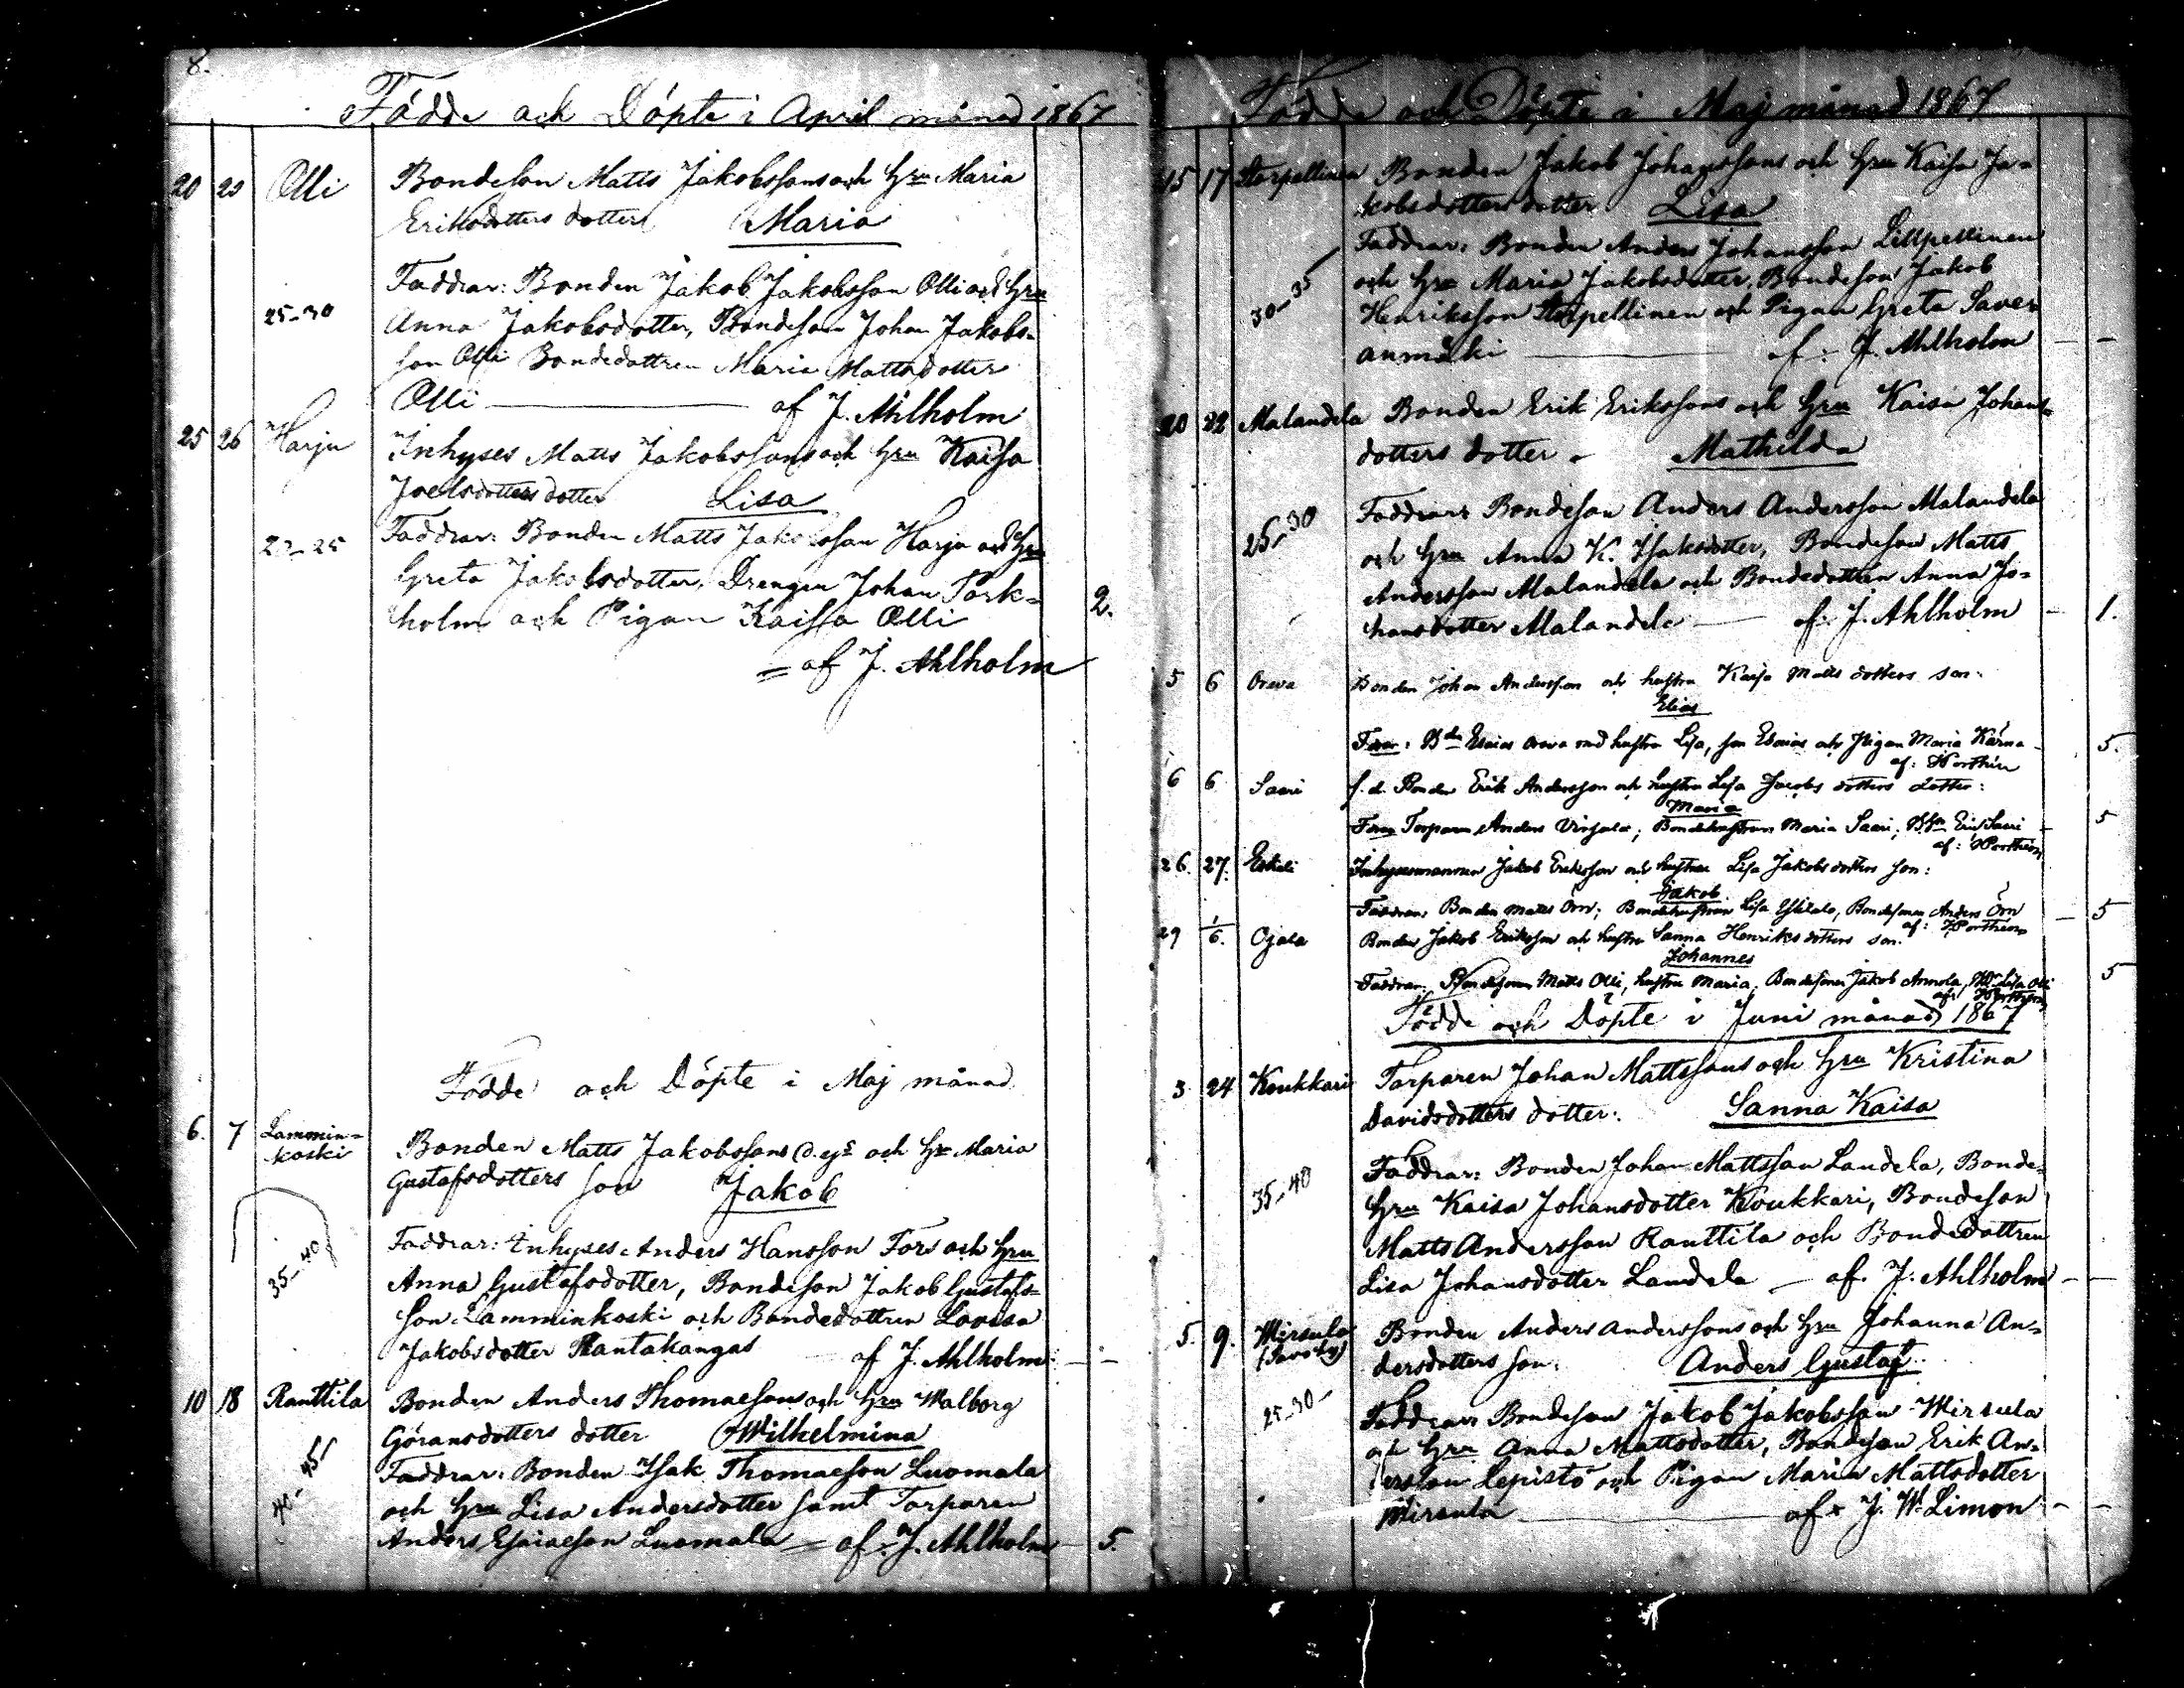 8.
Födde och Döpte i April månad 1867
20 20 Olli Bondeson Matts Jakobssons och hru Maria
Eriksdotters dotter Maria
Faddrar: Bonden Jakob Jakobsson Olli och hru
25-30 Anna Jakobsdotter, Bondeson Johan Jakobs-
son Olli Bondedottren Maria Mattsdotter
Olli af J. Ahlholm
25 26 Harju Inhyses Matts Jakobssons och hru Kaisa
Joelsdotters dotter Lisa
Faddrar: Bonden Matts Jakobsson Harju och hru
Greta Jakobsdotter, Drengen Johan Tork-
holm och Pigan Kaisa Olli 2.
= af J. Ahlholm
Födde och Döpte i Maj månad
6. 7 Lammin-
koski Bonden Matts Jakobssons d.ys och hr Maria
Gustafsdotters son Jakob
Faddrar: Inhyses Anders Hansson Fors och hru
35-40 Anna Gustafsdotter, Bondeson Jakob Gustafs-
son Lamminkoski och Bondedottren Lovisa
Jakobsdotter Rantakangas af J. Ahlholm
10 18 Ranttila Bonden Anders Thomaesons och hru Walborg
Göransdotters dotter Wilhelmina
40-45 Faddrar: Bonden Isak Thomaeson Luomala
och hru Lisa Andersdotter samt Torparen
Anders Esaiaeson Luomala = af: J. Ahlholm 5.
Födde och Döpte i Maj månad 1867
15 17 Storpellinen Bonden Jakob Johanssons och hru Kaisa Ja-
kobsdotters dotter Lisa
Faddrar: Bonden Anders Johansson Lillpellinen
30-35 och hru Maria Jakobsdotter, Bondeson Jakob
Henriksson Storpellinen och Pigan Greta Saver
anmäki af: J. Ahlholm
20 22 Malandela Bonden Erik Erikssons och hru Kaisa Johans-
dotters dotter - Mathilda
25-30 Faddrar: Bondeson Anders Andersson Malandela
och hru Anna K. Isaksdotter, Bondeson Matts
Andersson Malandela och Bondedottren Anna Jo-
hansdotter Malandela af: J. Ahlholm 1.
5 6 Orava Bonden Johan Andersson och hustru Kaisa Matts dotters son:
Elias
Esaias Orava med hustru Lisa, son Esaias och Pigan Maria Kärna 5.
af: Porthén
6 6 Saari f. d. Bonden Erik Andersson och hustru Lisa Jacobs dotters dotter:
Maria
Torparen Anders Virsala; Bondehustrun Maria Saari; Erik Saari 5
af: Porthén
26. 27. Inhysesmannen Jakob Eriksson och hustru Lisa Jakobs dotters son:
Jakob
Faddrar: Bonden Matts Örn; Bondehustrun Lisa Bondesonen Anders Örn 5
af: Porthén
29 1/6. Ojala Bonden Jakob Eriksson och hustru Sanna Henriks dotters son.
Johannes
Faddrar: Bondesonen Matts Olli, hustru Maria, Bondesonen Jakob Annola, Lisa Olli 5
af: Porthén
Födde och Döpte i Juni månad 1867
3 24 Koukkari Torparen Johan Mattssons och hru Kristina
Davidsdotters dotter: Sanna Kaisa
Faddrar: Bonden Johan Mattsson Landela, Bonde-
35-40 hru Kaisa Johansdotter Koukkari, Bondeson
Matts Andersson Ranttila och Bondedottren
Lisa Johansdotter Landela - af. J. Ahlholm
5. 9. Wirsula Bonden Anders Anderssons och hru Johanna An-
dersdotters son: Anders Gustaf.
25-30 Faddrar: Bondeson Jakob Jakobsson Wirsula
och hru Anna Mattsdotter, Bondeson Erik An-
dersson Lepistö och Pigan Maria Mattsdotter
Wirsula af: J. W. Limon